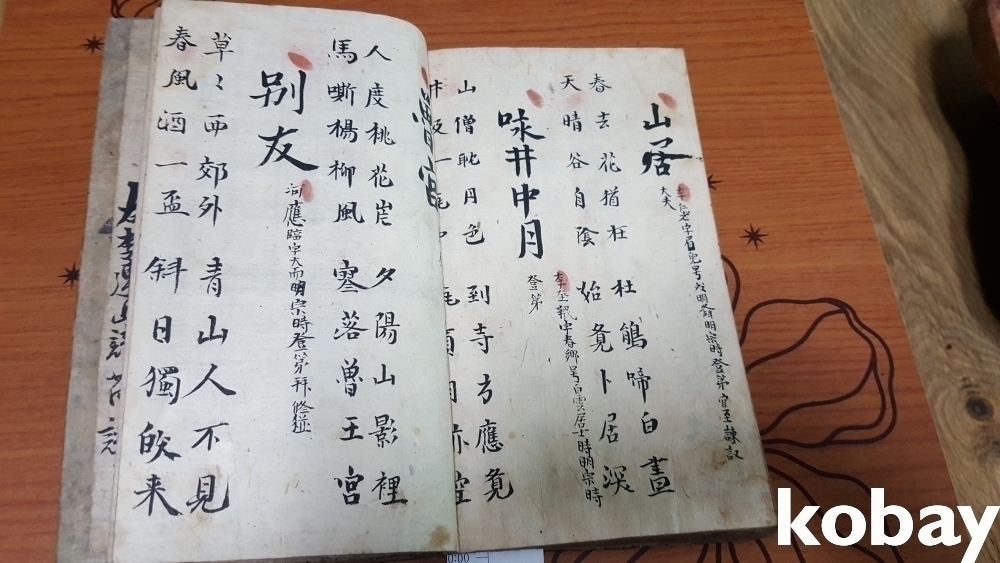 山居
李仁老字眉叟号双明斎明宗時登第官至諫議
大夫
春去花猶在 杜鵑啼白晝
天晴谷自陰 始覚卜居深
咏井中月
李奎報字春卿号白雲居士時明宗時
登第
山僧耽月色 到寺方應覚
汲一瓶中 瓶傾月亦空
人度桃花岸 夕陽山影裡
馬嘶楊柳風 寥落曾王宮
別友
河應臨字大而明宗時登第拜修撰
草〻西郊外 青山人不見
春風酒一盃 斜日獨皈来
kobay